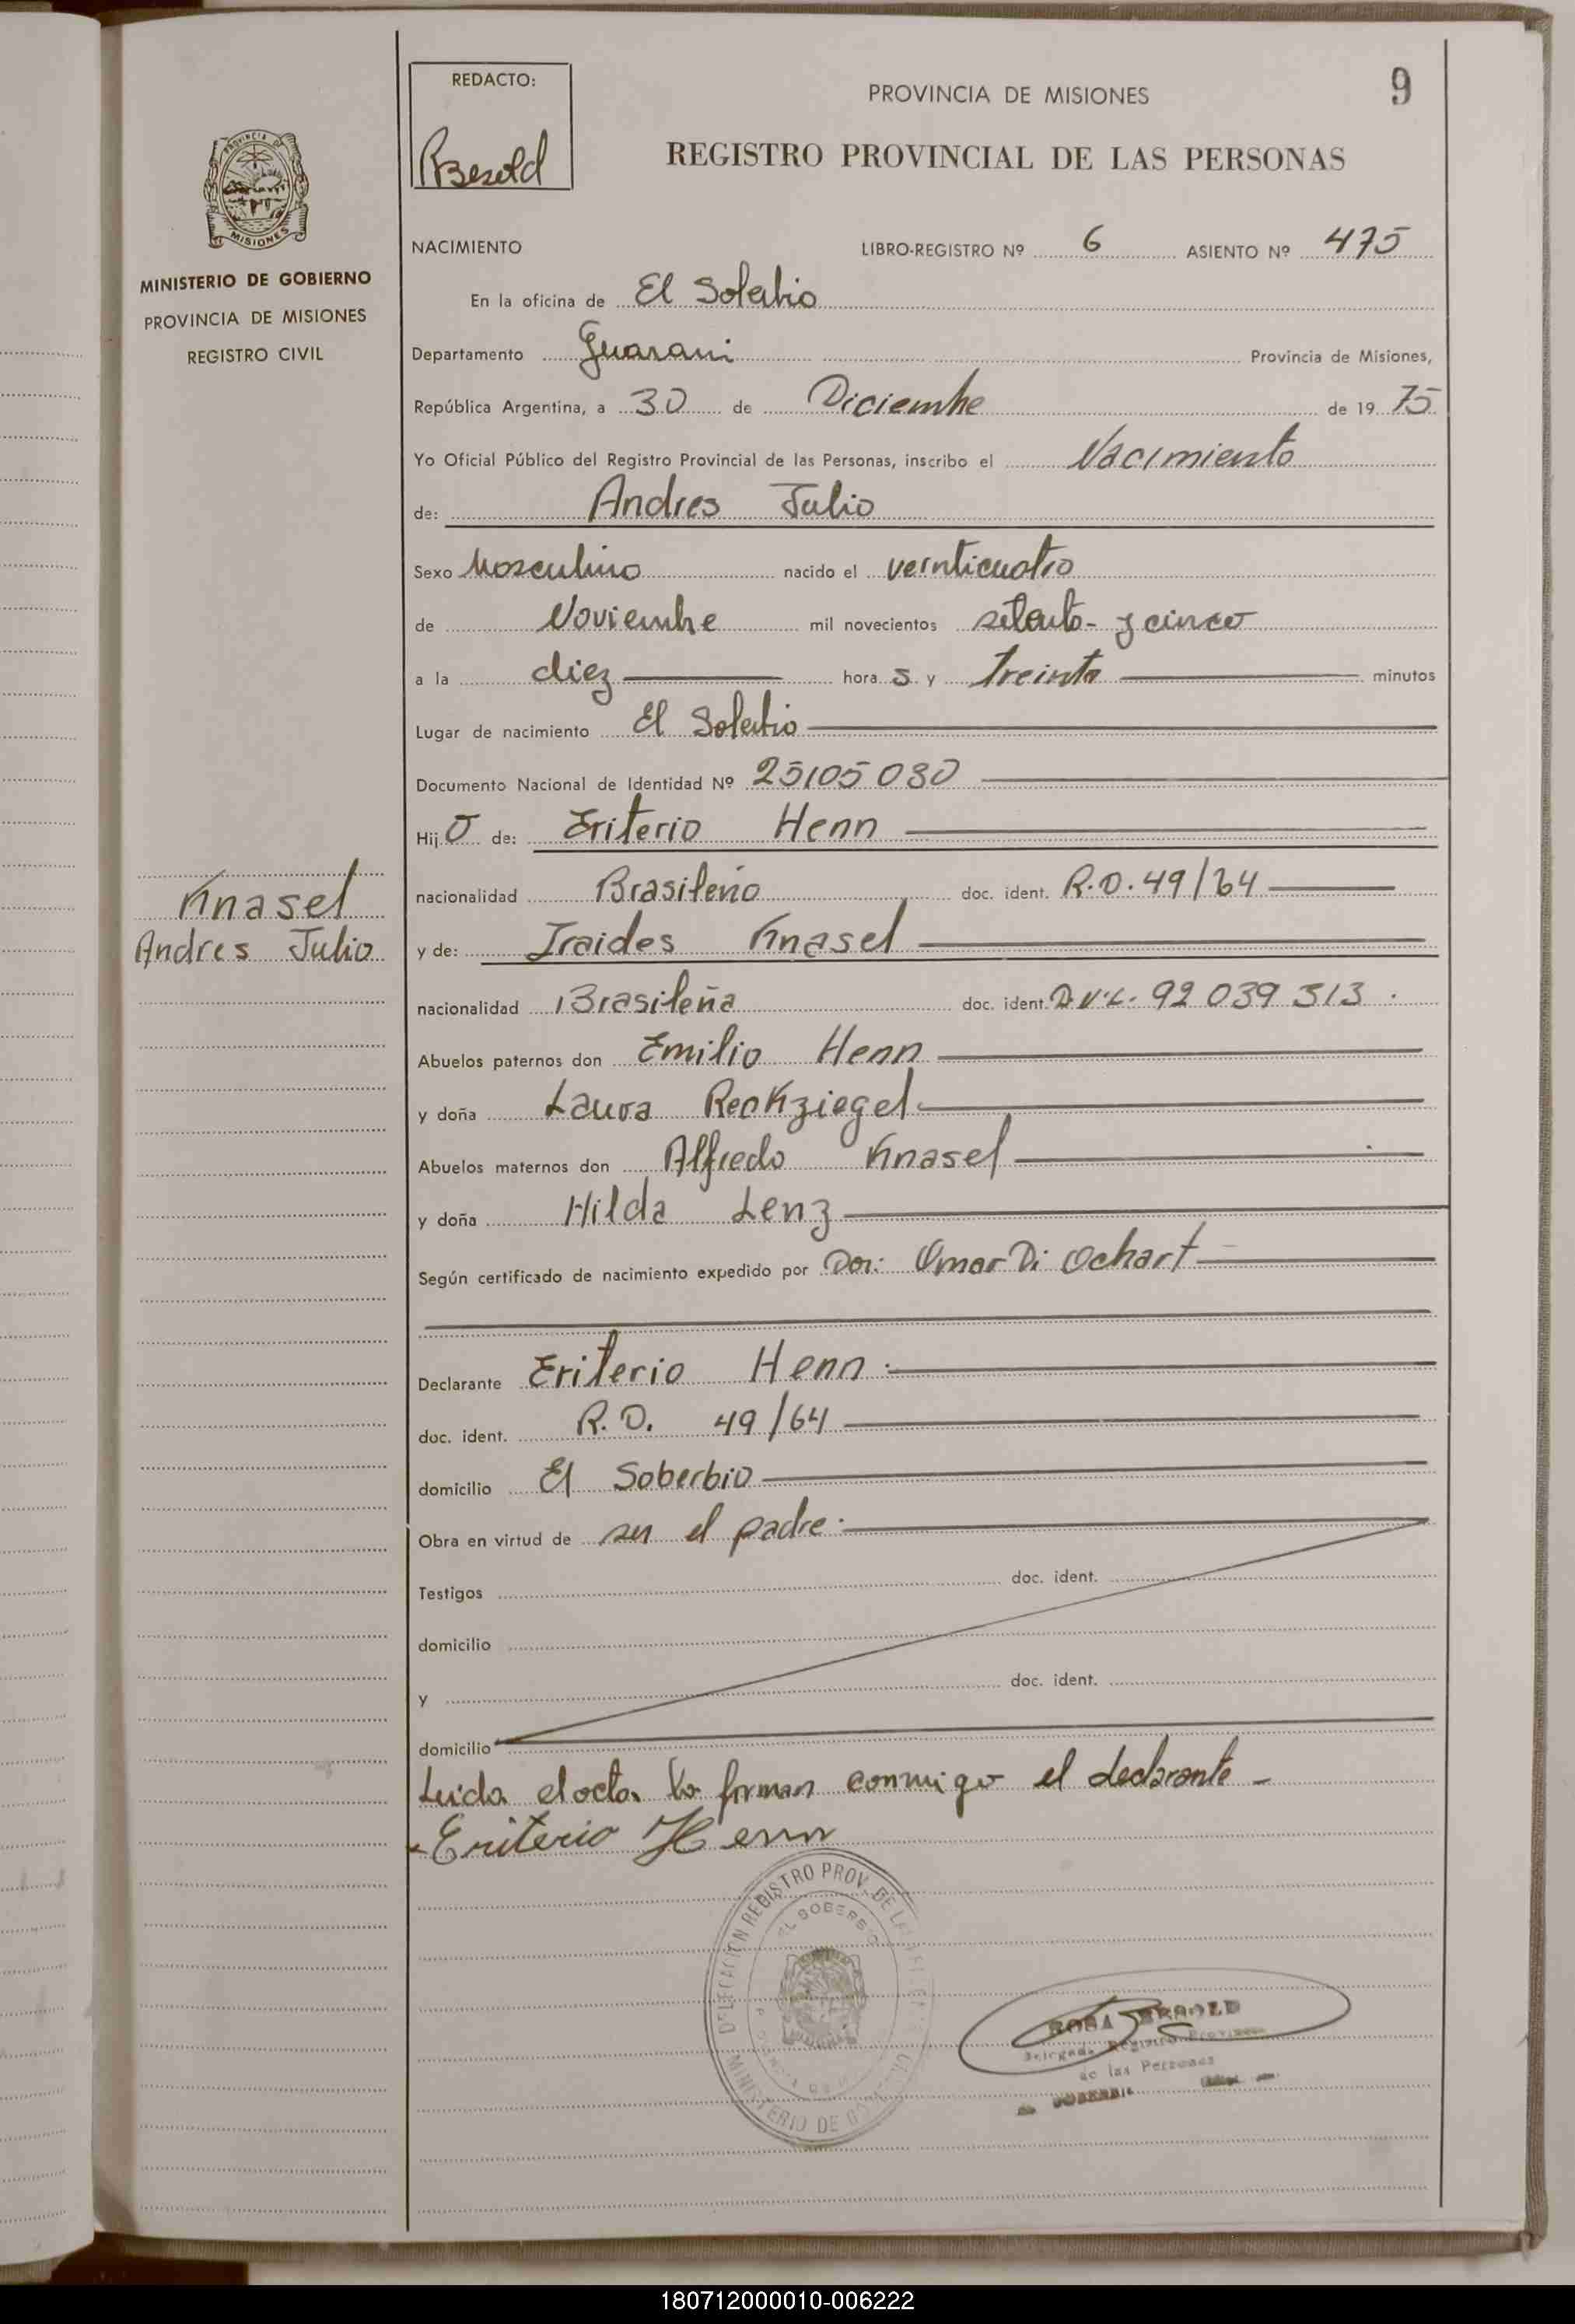 REDACTO:
PROVINCIA DE MISIONES
9
RBesold
REGISTRO PROVINCIAL DE LAS PERSONAS
PROVINCIA DE
MISIONES
MINISTERIO DE GOBIERNO
PROVINCIA DE MISIONES
REGISTRO CIVIL
NACIMIENTO LIBRO-REGISTRO Nº 6 ASIENTO Nº 475
En la oficina de El Soberbio
Departamento Guarani Provincia de Misiones,
República Argentina, a 30 de Diciembre de 19 75
Yo Oficial Público del Registro Provincial de las Personas, inscribo el Nacimiento
de: Andres Julio
Sexo Masculino nacido el veinticuatro
de Noviembre mil novecientos setenta y cinco
a la diez hora s y treinta minutos
Lugar de nacimiento El Soberbio
Documento Nacional de Identidad Nº 25105030
Hij o de: Eriterio Henn
nacionalidad Brasileño doc. ident. R.D. 49/64
Knasel
Andres Julio
y de: Iraides Knasel
nacionalidad Brasileña doc. ident. 92 039 313
Abuelos paternos don Emilio Henn
y doña Laura Reckziegel
Abuelos maternos don Alfredo Knasel
y doña Hilda Lenz
Según certificado de nacimiento expedido por Dor: Omar Di Ochart
Declarante Eriterio Henn
doc. ident. R.D. 49/64
domicilio El Soberbio
Obra en virtud de ser el padre
Testigos doc. ident.
domicilio
y doc. ident.
domicilio
Leida el acta la firman conmigo el declarante -
Eriterio Henn
DELEGACION REGISTRO PROV. DE LAS
EL SOBERBIO
MINISTERIO DE
ROSA BESOLD
Delegada Registro Provincial
de las Personas
SOBERBIO
180712000010-006222